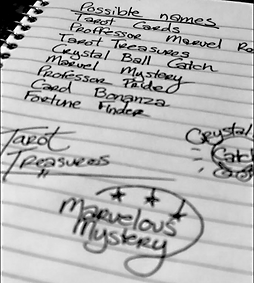 Possible names
Tarot Cards
Proffessor Marvel
Tarot Treasures
Crystal Ball Catch
Marvel Mystery
Professor Pride
Card Bonanza
Fortune Finder
Tarot
Treasures
Crystal
Catch
Marvelous
Mystery